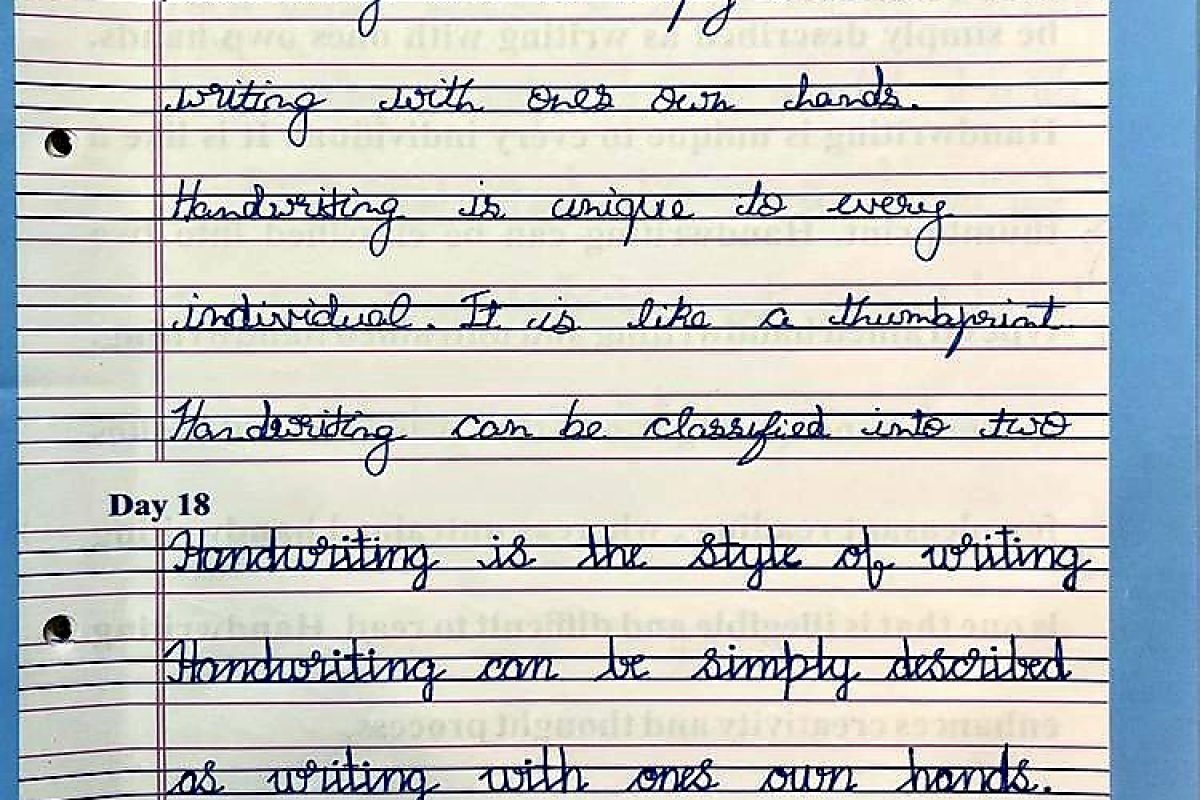 writing with ones own hands.
Handwriting is unique to every
individual. It is like a thumbprint
Handwriting can be classified into two
Day 18
Handwriting is the style of writing
Handwriting can be simply described
as writing with ones own hands.